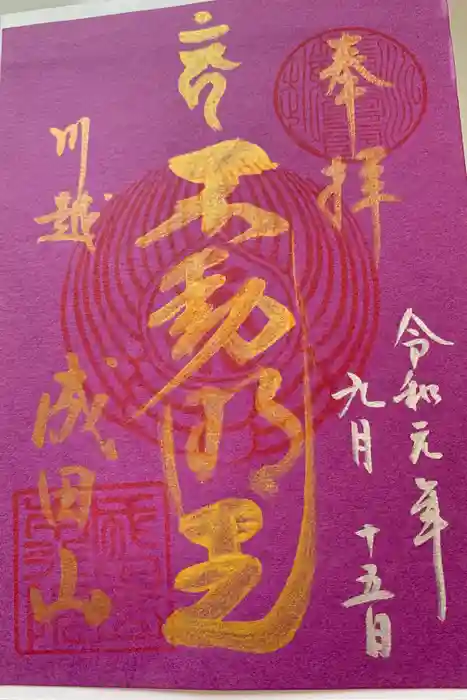 奉拝
令和元年
九月
十五日
不動明王
川越
成田山